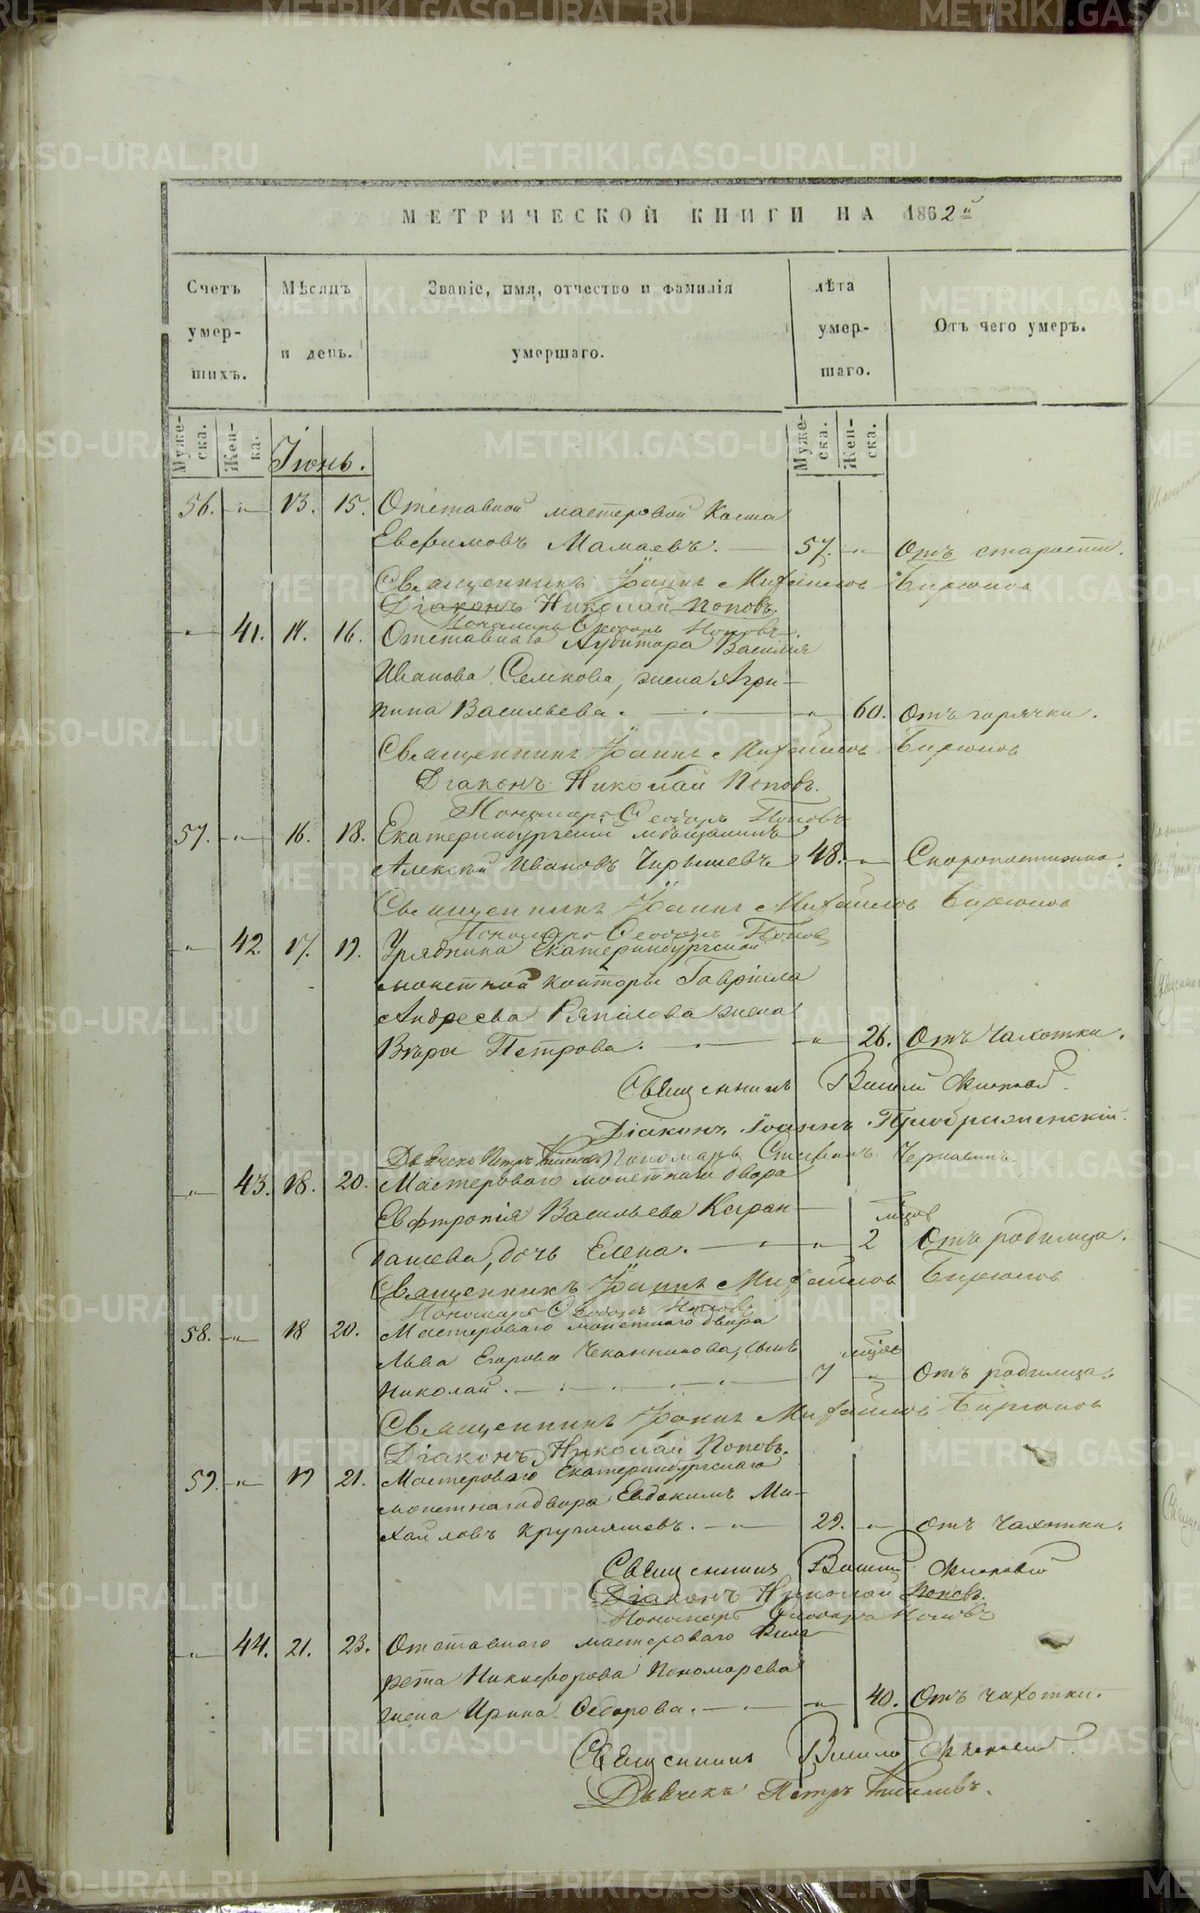 МЕТРИЧЕСКОЙ КНИГИ НА 1862й
Счетъ умер-шихъ.
Мѣсяцъ и день.
Званіе, имя, отчество и фамилія умершаго.
лѣта умер-шаго.
Отъ чего умеръ.
Муже-ска. Жен-ка.
Муже-ска. Жен-ска.
Іюнь.
56. " 13. 15. Отставной мастеровой Косма
Евфимовъ Мамаевъ. 57. " Отъ старости.
Священникъ Іоаннъ Михайловъ Бирюковъ
Діаконъ Николай Поповъ.
Пономарь Ѳеодоръ Поповъ.
" 41. 14. 16. Отставнаго Аудитора Василія
Иванова Семкова, жена Агри-
пина Васильева. " 60. Отъ горячки.
Священникъ Іоаннъ Михайловъ Бирюковъ
Діаконъ Николай Поповъ.
Пономарь Ѳеодоръ Поповъ
57. " 16. 18. Екатеринбургскій мѣщанинъ
Алексѣй Ивановъ Чирышевъ 48. " Скоропостижно.
Священникъ Іоаннъ Михайловъ Бирюковъ
Пономарь Ѳеодоръ Поповъ
" 42. 17. 19. Урядника Екатеринбургской
монетной конторы Гавріила
Андреева жена
Вѣра Петрова. " 26. Отъ чахотки.
Священникъ Василій
Діаконъ Іоаннъ Преображенскій.
Дьячекъ Петръ Пономарь Стефанъ Чернавинъ
" 43. 18. 20. Мастероваго монетнаго двора
Евфтропія Васильева Каран-
дашева, дочь Елена. " 2 мѣсяц Отъ родимца.
Священникъ Іоаннъ Михайловъ Бирюковъ
Пономарь Ѳеодоръ Поповъ
58. " 18 20. Мастероваго монетнаго двора
Льва Егорова Чеканникова, сынъ
Николай. 7 мѣсяц " Отъ родимца.
Священникъ Іоаннъ Михайловъ Бирюковъ
Діаконъ Николай Поповъ.
59. " 19 21. Мастероваго Екатеринбургскаго
монетнаго двора Евдокимъ Ми-
хайловъ Кругляшевъ. 29. " Отъ чахотки.
Священникъ Василій
Діаконъ Николай Поповъ.
Пономарь Ѳеодоръ Поповъ
" 44. 21. 23. Отставнаго мастероваго Фила-
рета Никифорова Пономарева
жена Ирина Ѳедорова. " 40. Отъ чахотки.
Священникъ Василій
Дьячекъ Петръ
METRIKI.GASO-URAL.RU